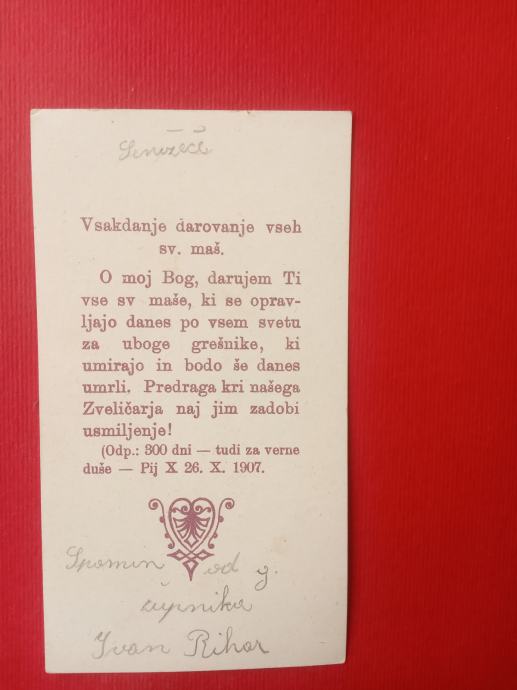 Senožeče
Vsakdanje darovanje vseh
sv. maš.
O moj Bog, darujem Ti
vse sv maše, ki se oprav-
ljajo danes po vsem svetu
za uboge grešnike, ki
umirajo in bodo še danes
umrli. Predraga kri našega
Zveličarja naj jim zadobi
usmiljenje!
(Odp.: 300 dni — tudi za verne
duše — Pij X 26. X. 1907.
Spomin od g.
župnika
Ivan Rihar